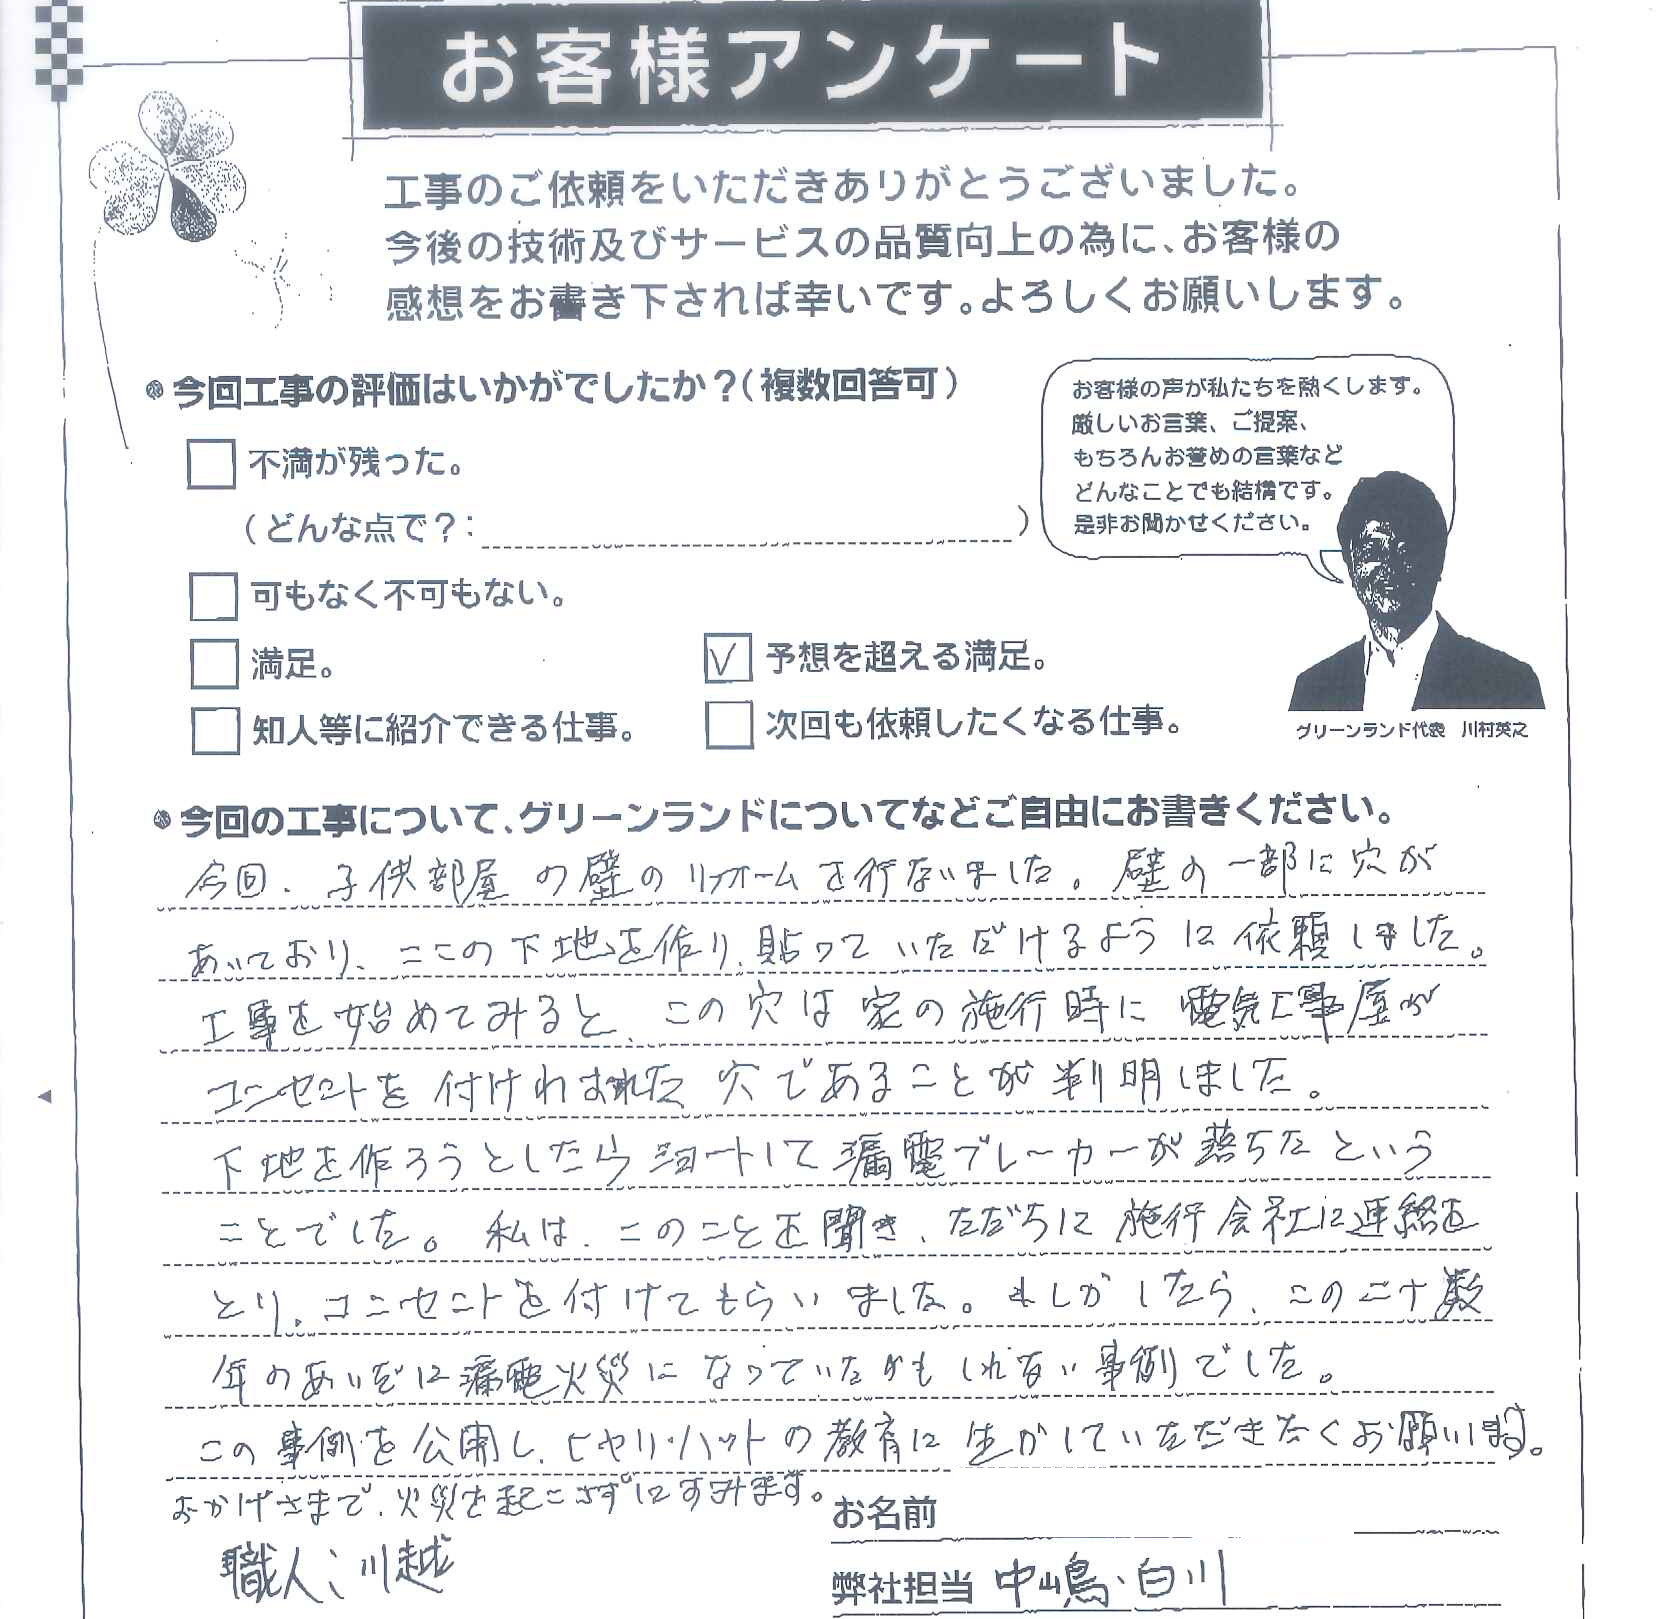 お客様アンケート
工事のご依頼をいただきありがとうございました。
今後の技術及びサービスの品質向上の為に、お客様の
感想をお書き下されば幸いです。よろしくお願いします。
今回工事の評価はいかがでしたか？(複数回答可)
お客様の声が私たちを熱くします。
厳しいお言葉、ご提案、
もちろんお誉めの言葉など
どんなことでも結構です。
是非お聞かせください。
不満が残った。
(どんな点で？: )
可もなく不可もない。
満足。
✓ 予想を超える満足。
知人等に紹介できる仕事。
次回も依頼したくなる仕事。
グリーンランド代表 川村英之
今回の工事について、グリーンランドについてなどご自由にお書きください。
今回、子供部屋の壁のリフォームを行ないました。壁の一部に穴が
あいており、ここの下地を作り、貼っていただけるように依頼しました。
工事を始めてみると、この穴は家の施行時に電気工事屋が
コンセントを付けわすれた穴であることが判明しました。
下地を作ろうとしたらショートして漏電ブレーカーが落ちたという
ことでした。私は、このことを聞き、ただちに施行会社に連絡を
とり、コンセントを付けてもらいました。もしかしたら、この二十数
年のあいだに漏電火災になっていたかもしれない事例でした。
この事例を公開し、ヒヤリ・ハットの教育に生かしていただきたくお願いします。
おかげさまで、火災を起こさずにすみます。
職人：川越
お名前
弊社担当 中嶋・白川